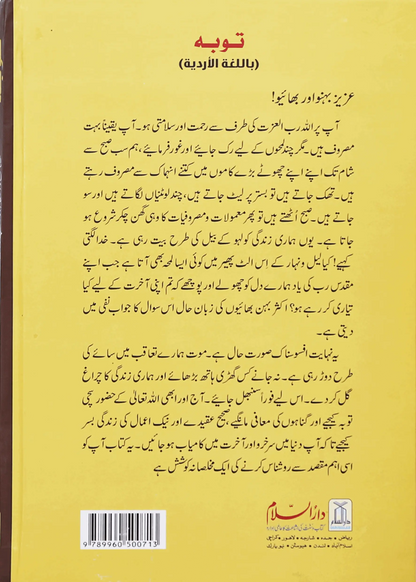 توبہ
(باللغة الأردية)
عزیز بہنو اور بھائیو!
آپ پر اللہ رب العزت کی طرف سے رحمت اور سلامتی ہو۔ آپ یقیناً بہت
مصروف ہیں۔ مگر چند لمحوں کے لیے رک جائیے اور غور فرمائیے، ہم سب صبح سے
شام تک اپنے اپنے چھوٹے بڑے کاموں میں کتنے انہماک سے مصروف رہتے
ہیں۔ تھک جاتے ہیں تو بستر پر لیٹ جاتے ہیں، چند لوٹنیاں لگاتے ہیں اور سو
جاتے ہیں۔ صبح اُٹھتے ہیں تو پھر معمولات و مصروفیات کا وہی گھن چکر شروع ہو
جاتا ہے۔ یوں ہماری زندگی کولہو کے بیل کی طرح بیت رہی ہے۔ خدا لگتی
کہیے! کیا لیل و نہار کے اس الٹ پھیر میں کوئی ایسا لمحہ بھی آتا ہے جب اپنے
مقدس رب کی یاد ہمارے دل کو چھولے اور پوچھے کہ تم اپنی آخرت کے لیے کیا
تیاری کر رہے ہو؟ اکثر بہن بھائیوں کی زبان حال اس سوال کا جواب نفی میں
دیتی ہے۔
یہ نہایت افسوسناک صورت حال ہے۔ موت ہمارے تعاقب میں سائے کی
طرح دوڑ رہی ہے۔ نہ جانے کس گھڑی ہاتھ بڑھائے اور ہماری زندگی کا چراغ
گل کر دے۔ اس لیے فوراً سنبھل جائیے۔ آج اور ابھی اللہ تعالیٰ کے حضور سچی
توبہ کیجیے اور گناہوں کی معافی مانگیے، صحیح عقیدے اور نیک اعمال کی زندگی بسر
کیجیے تاکہ آپ دنیا میں سرخرو اور آخرت میں کامیاب ہو جائیں۔ یہ کتاب آپ کو
اسی اہم مقصد سے روشناس کرنے کی ایک مخلصانہ کوشش ہے
دارالسلام
ریاض • جدہ • شارجہ • لاہور • کراچی
اسلام آباد • لندن • ہیوسٹن • نیویارک
9 789960 500713